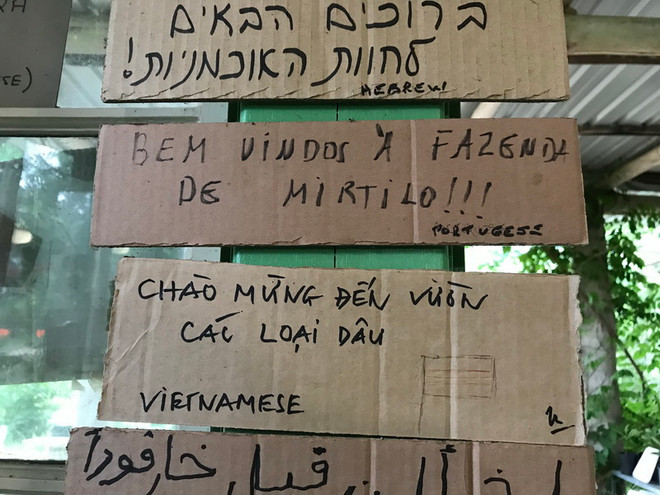 ברוכים הבאים
לחוות האוכמניות!
HEBREW
BEM VINDOS À FAZENDA
DE MIRTILO!!!
PORTUGESE
CHÀO MỪNG ĐẾN VƯỜN
CÁC LOẠI DÂU
VIETNAMESE